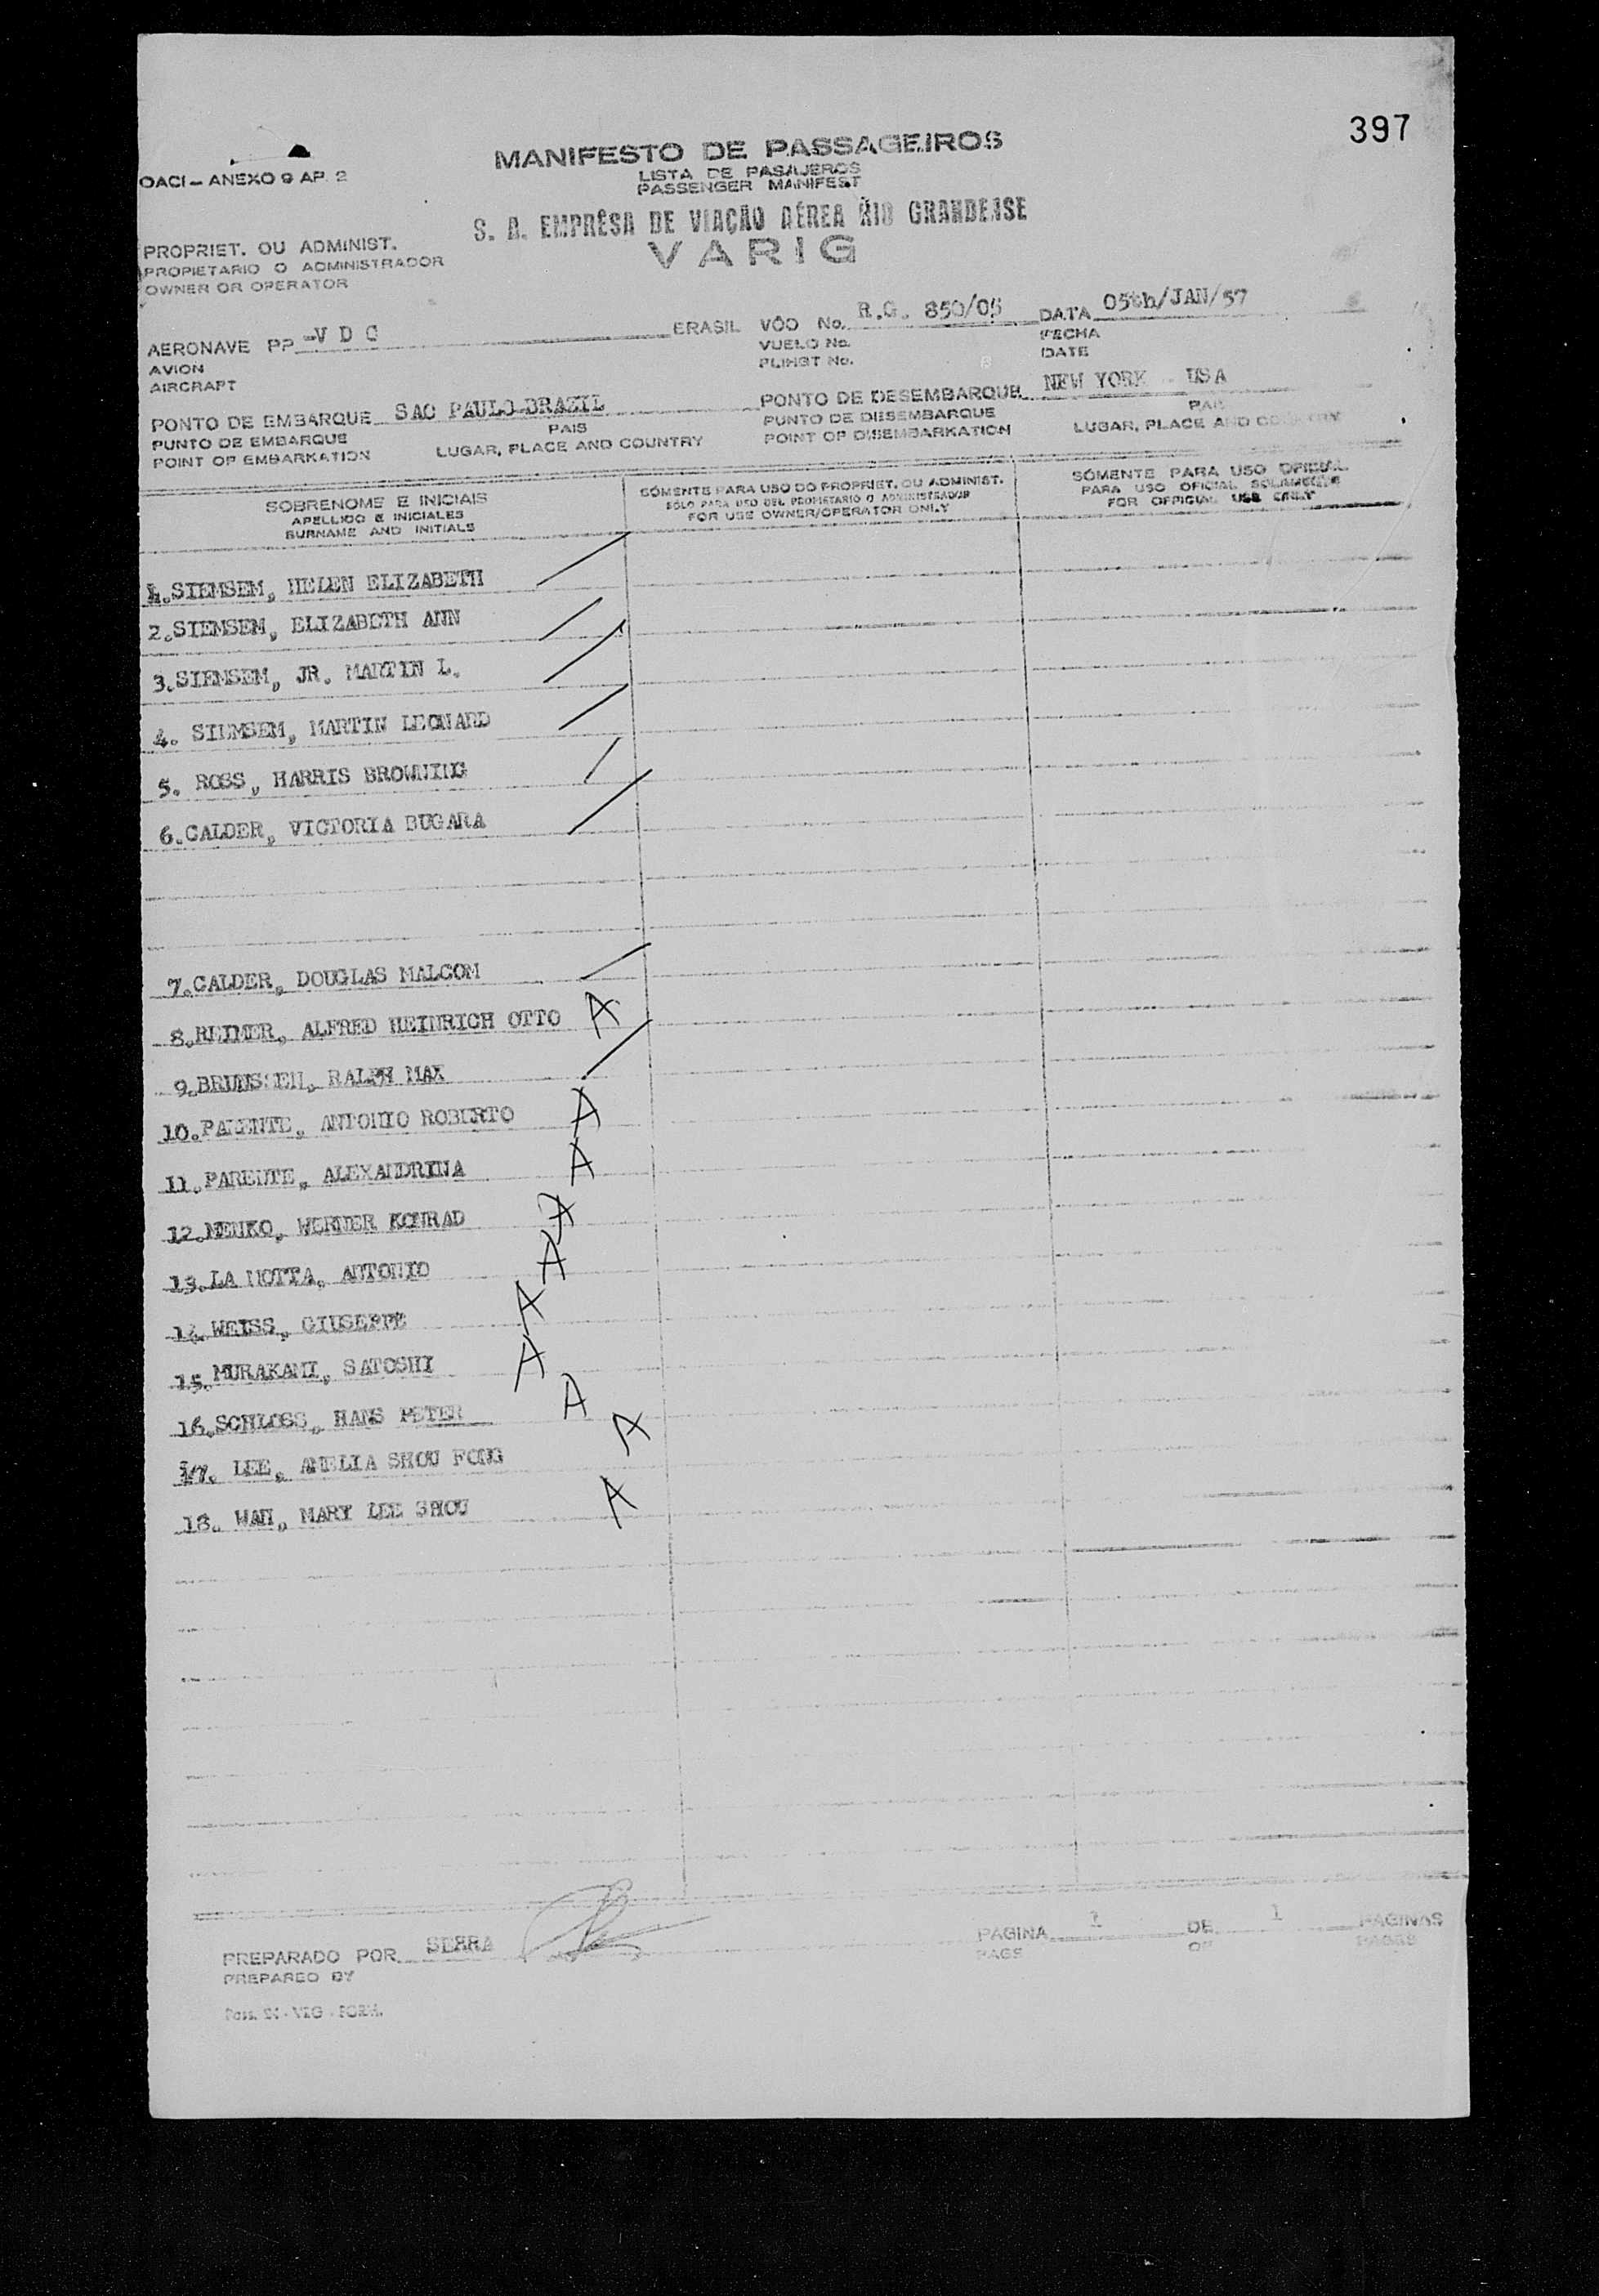 397
MANIFESTO DE PASSAGEIROS
LISTA DE PASAJEROS
PASSENGER MANIFEST
OACI - ANEXO 9 AP. 2
S. A. EMPRÊSA DE VIAÇÃO AÉREA RIO GRANDENSE
VARIG
PROPRIET. OU ADMINIST.
PROPIETARIO O ADMINISTRADOR
OWNER OR OPERATOR
AERONAVE PP -V D C BRASIL VÔO No. R.G. 850/05 DATA 05th/JAN/57
AVION VUELO No. FECHA
AIRCRAFT FLIHGT No. DATE
PONTO DE EMBARQUE SAO PAULO-BRAZIL PONTO DE DESEMBARQUE NEW YORK USA
PUNTO DE EMBARQUE PAIS PUNTO DE DISEMBARQUE PAIS
POINT OF EMBARKATION LUGAR, PLACE AND COUNTRY POINT OF DISEMBARKATION LUGAR, PLACE AND COUNTRY
SOBRENOME E INICIAIS SÓMENTE PARA USO DO PROPRIET. OU ADMINIST. SÓMENTE PARA USO OFICIAL
APELLIDO E INICIALES SÓLO PARA USO DEL PROPIETARIO O ADMINISTRADOR PARA USO OFICIAL SOLAMENTE
SURNAME AND INITIALS FOR USE OWNER/OPERATOR ONLY FOR OFFICIAL USE ONLY
1. SIEMSEM, HELEN ELIZABETH
2. SIEMSEM, ELIZABETH ANN
3. SIEMSEM, JR. MARTIN L.
4. SIEMSEM, MARTIN LEONARD
5. ROSS, HARRIS BROWNING
6. CALDER, VICTORIA BUGARA
7. CALDER, DOUGLAS MALCOM
8. REIMER, ALFRED HEINRICH OTTO A
9. BRUNSSEN, RALPH MAX
10. PARENTE, ANTONIO ROBERTO A
11. PARENTE, ALEXANDRINA A
12. MENKO, WERNER KONRAD A
13. LA MOTTA, ANTONIO A
14. WEISS, GIUSEPPE A
15. MURAKAMI, SATOSHI A
16. SCHLOSS, HANS PETER A
17. LEE, AMELIA SHOU FONG A
18. WAN, MARY LEE SHOU A
PREPARADO POR SERRA PAGINA DE 1 PAGINAS
PREPARED BY PAGE OF PAGES